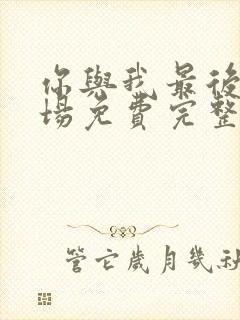 你與我最後
場免費完整
管它歲月幾